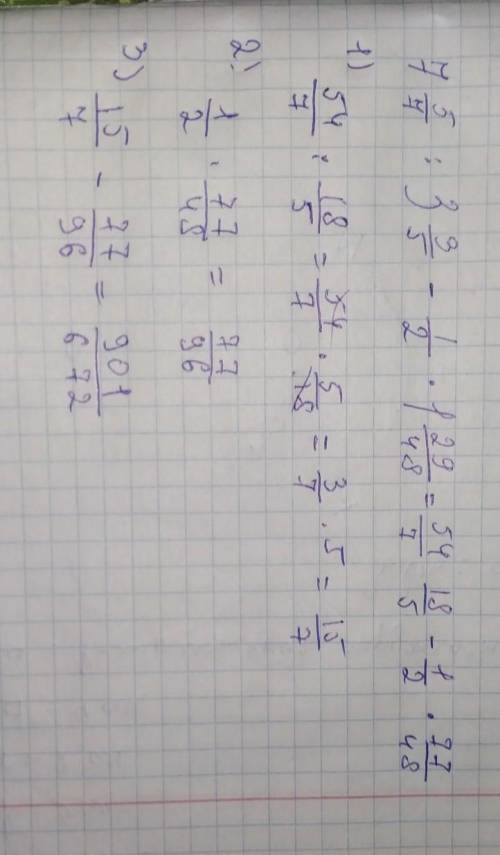 7 5/7 : 3 3/5 - 1/2 · 1 29/48 = 54/7 18/5 - 1/2 · 77/48
1) 54/7 : 18/5 = 54/7 · 5/18 = 3/7 · 5 = 15/7
2) 1/2 · 77/48 = 77/96
3) 15/7 - 77/96 = 901/672